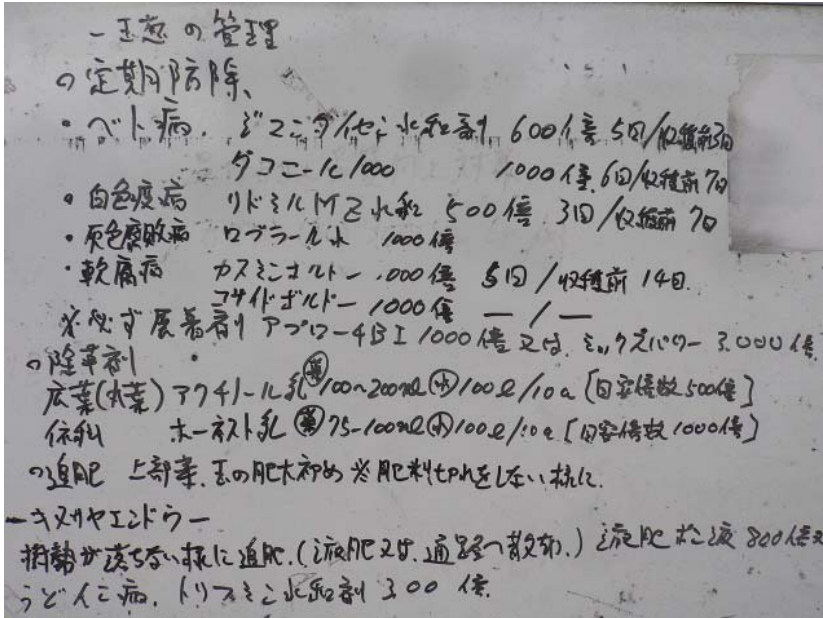 一玉葱の管理
○定期防除、
・ベト病. ジマンダイセン水和剤 600倍 5回/収穫前3日
ダコニール1000 1000倍. 6回/収穫前7日
・白色疫病 リドミルMZ水和 500倍 3回/収穫前7日
・灰色腐敗病 ロブラール水 1000倍
・軟腐病 カスミンボルドー 1000倍 5回/収穫前14日.
コサイドボルドー 1000倍 ー/ー
※必ず展着剤 アプローチBI 1000倍又は. ミックスパワー 3.000倍.
○除草剤
広葉(丸葉) アクチノール乳 ㊇100~200ml ㊌100ℓ/10a [目安倍数500倍]
ホーネスト乳 75-100ml ㊌100ℓ/10a [目安倍数1000倍]
○追肥 上部葉. 玉の肥大初め ※肥料切れをしない様に.
ーキヌサヤエンドウー
樹勢が落ちない様に追肥.(液肥又は. 通路へ散布.) 液肥 800倍又
うどんこ病. トリフミン水和剤 300倍.